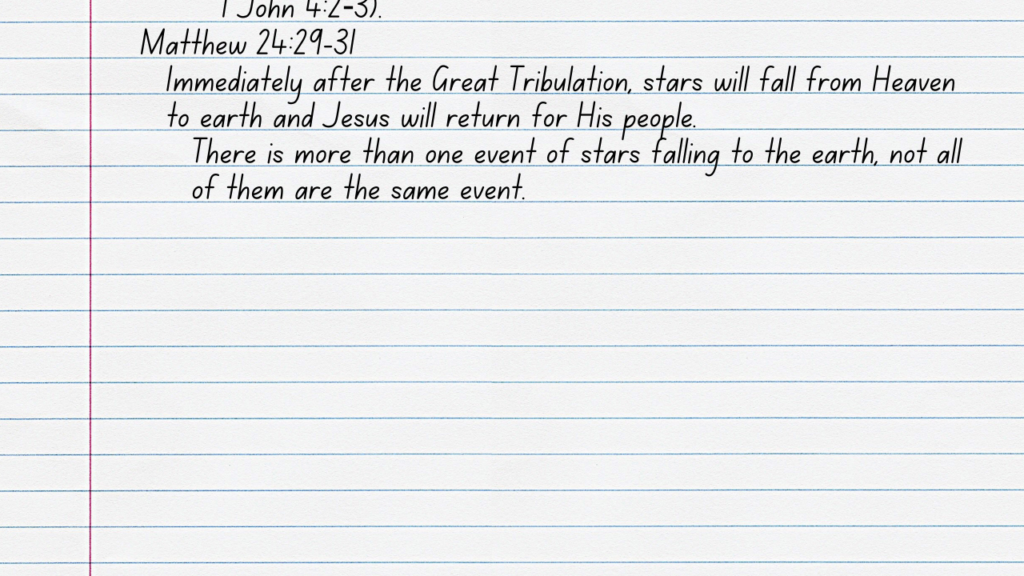 1 John 4:2-3).
Matthew 24:29-31
Immediately after the Great Tribulation, stars will fall from Heaven
to earth and Jesus will return for His people.
There is more than one event of stars falling to the earth, not all
of them are the same event.